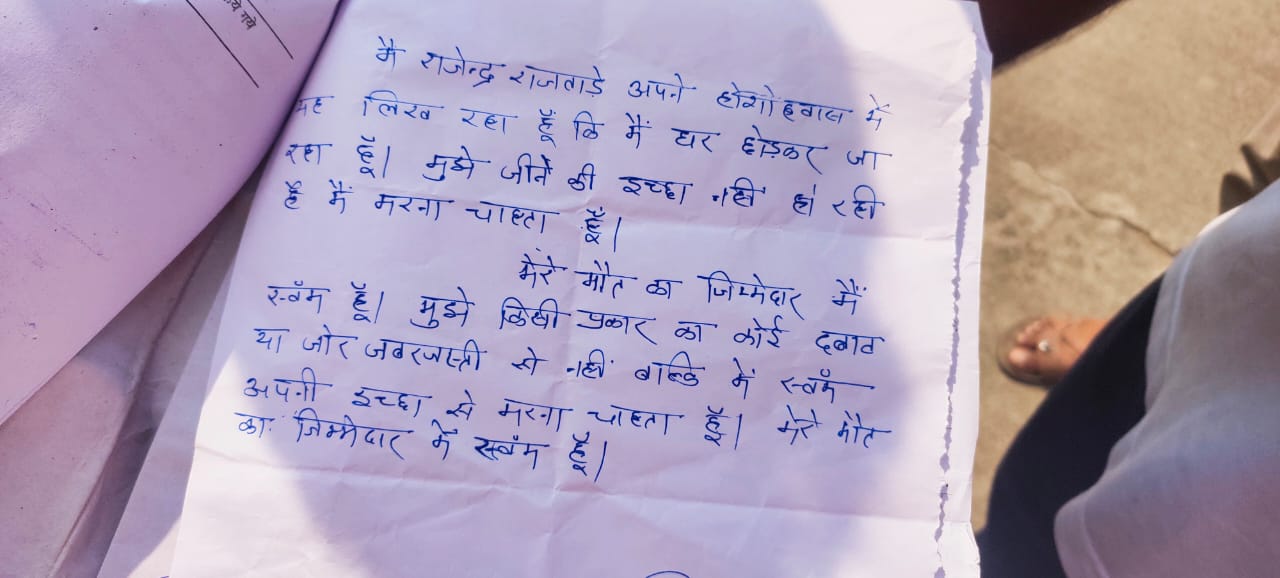 ये गये
मै राजेन्द्र राजवाड़े अपने होशोहवास में
यह लिख रहा हूँ कि मैं घर छोड़कर जा
रहा हूँ। मुझे जीने की इच्छा नहीं हो रही
हैं मैं मरना चाहता हूँ।
मेरे मौत का जिम्मेदार मैं
स्वॅम हूँ। मुझे किसी प्रकार का कोई दबाव
या जोर जबरजस्ती से नहीं बल्कि में स्वॅम
अपनी इच्छा से मरना चाहता हूँ। मेरे मौत
का जिम्मेदार में स्वॅम हूँ।